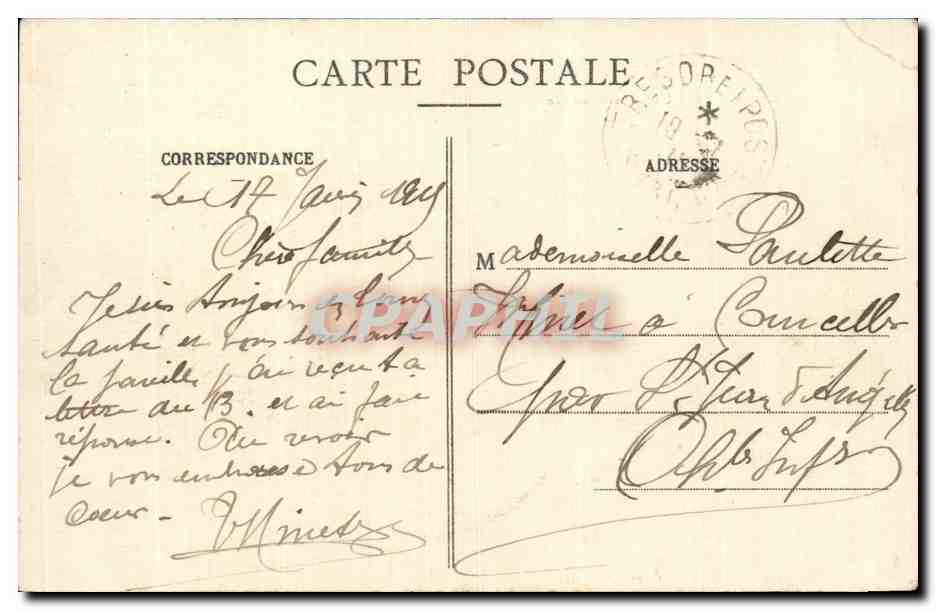 CARTE POSTALE
TRESOR ET POSTES
18
*
CORRESPONDANCE
ADRESSE
Le 17 Janvier 1915
Chère famille
Je suis toujours en bonne
santé et vous souhaite
la pareille j'ai reçu ta
lettre du 13. et ai fait
réponse. Au revoir
je vous embrasse tous de
Coeur -
Minet
Mademoiselle Paulette
Minet à Courcelles
par St Jean d'Angély
Chte Infre
CPAPHIL